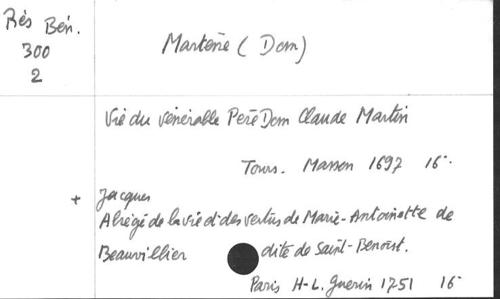 Rès Bén.
300
2
Martène (Dom)
Vie du vénérable Père Dom Claude Martin
Tours. Masson 1697 16°.
+ Jacques
Abrégé de la vie et des vertus de Marie-Antoinette de
Beauvillier dite de Saint-Benoist.
Paris H-L. Guerin 1751 16°